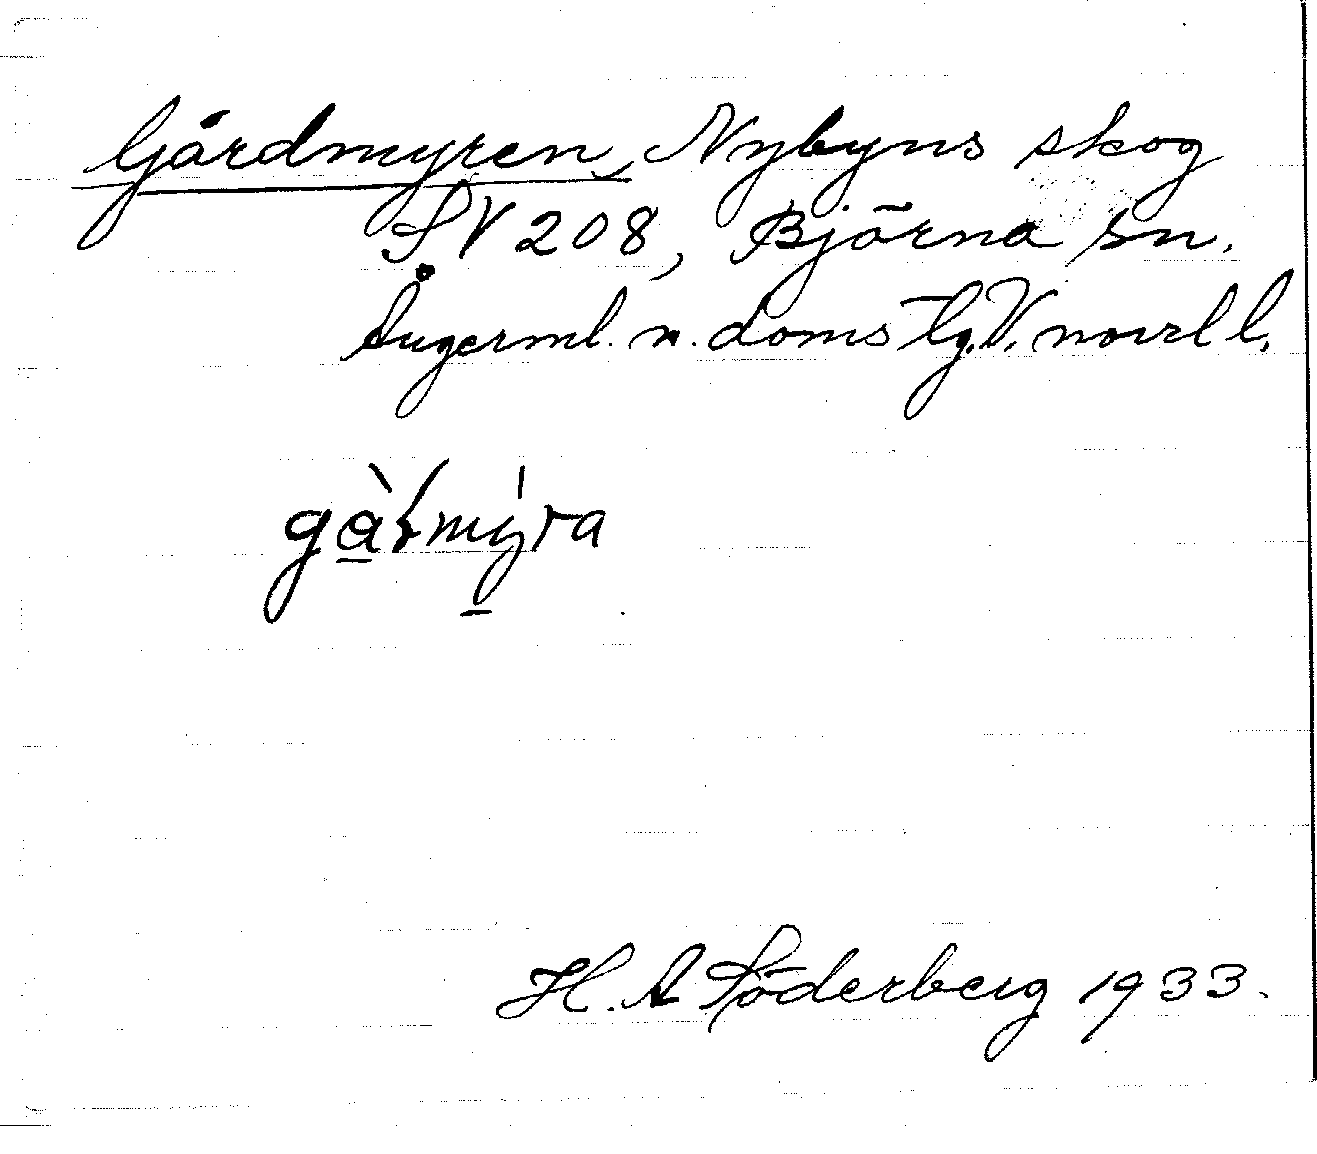 Gårdmyren, Nybyns skog
SV 208, Björna sn.
Ångerml. n. doms tg. V. norrl l.
gàɽmýra
H. A Söderberg 1933.